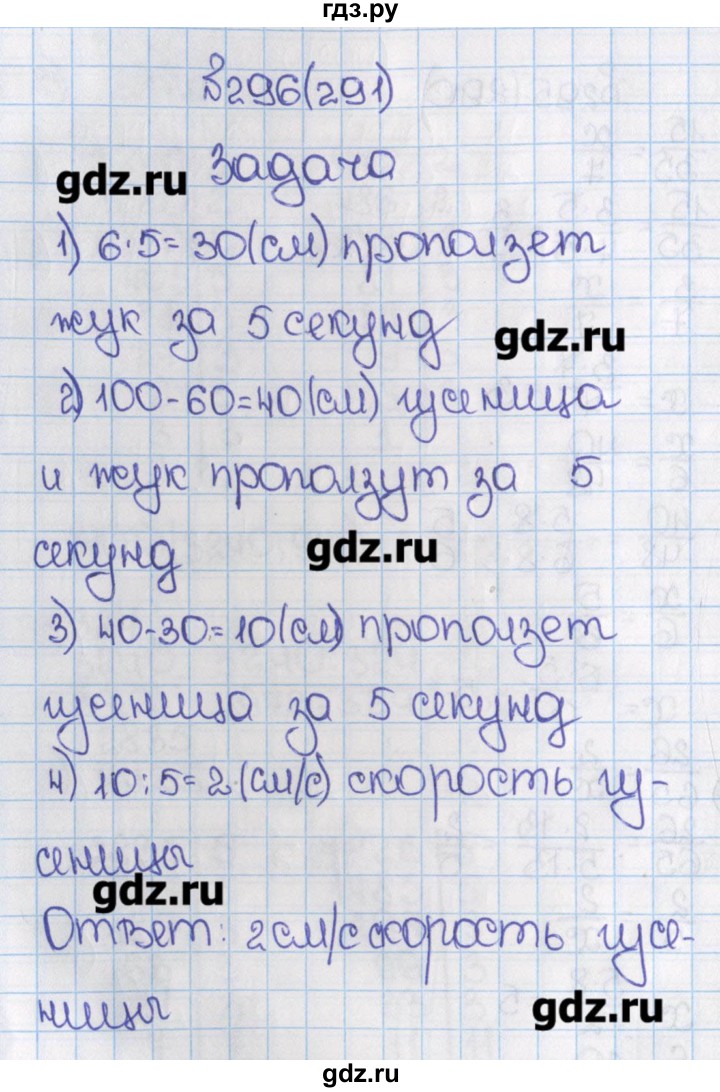 гдз.ру
№296(291)
Задача
gdz.ru
1) 6·5=30(см) проползет
жук за 5 секунд
gdz.ru
2) 100-60=40(см) гусеница
и жук проползут за 5
секунд
gdz.ru
3) 40-30=10(см) проползет
гусеница за 5 секунд
4) 10:5=2(см/с) скорость гу-
сеницы
gdz.ru
Ответ: 2 см/с скорость гусе-
ницы
gdz.ru
gdz.ru